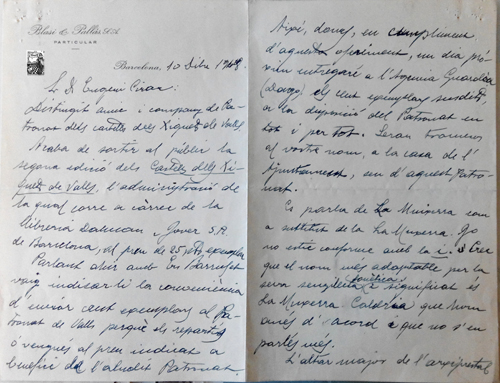 Blasi & Pallás S.A.
PARTICULAR
Barcelona, 10 Dbre 194
Sr. D. Eugeni
Distingit amic i company de Pa-
tronat dels castells dels Xiquets de Valls.
Acaba de sortir al públic la
segona edició dels Castells dels Xi-
quets de Valls, l'administració de
la qual corre a càrrec de la
Llibreria Dalmau i Jover S.A.
de Barcelona, al preu de 25 exemplar
Parlant ahir amb En
vaig indicar-li la conveniencia
d'enviar cent exemplars al Pa-
tronat de Valls perque els repartís
ó vengués al preu indicat a
benefici de l'aludit Patronat
Així, doncs, en compliment
d'aquest oferiment, un dia prò-
xim entregaré a l'Agencia
els cent exemplars susdits,
a la disposició del Patronat en
tot i per tot. Seran tramesos
al vostre nom, a la casa de l'
Ajuntament, seu d'aquest Patro-
nat.
Es parla de La Muixerra com
a substitut de la La Muxerra. Jo
no estic conforme amb la i. Crec
que el nom més adaptable per la
seva senzillesa i significat és
La Muxerra que hom
d'acord a que no s'en
parlés més.
L'altar major de l'arxiprestal